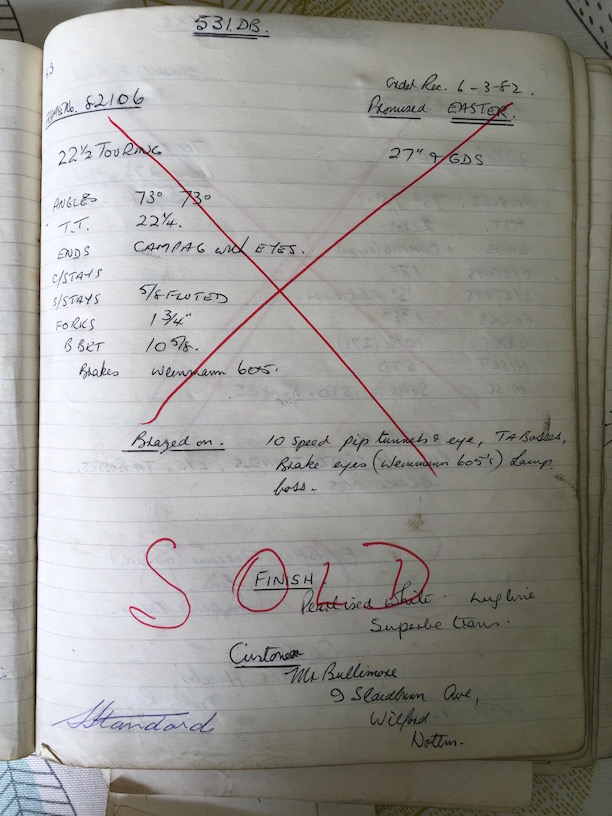 531.DB.
Order Rec. 6-3-82.
FRAME No. 82106
Promised EASTER.
22½ TOURING
27" & GDS
ANGLES 73° 73°
T.T. 22¼.
ENDS CAMPAG with EYES.
C/STAYS
S/STAYS 5/8 FLUTED
FORKS 1¾"
B BKT 10⅝.
Brakes Weinmann 605.
Brazed on. 10 speed pip tunnels & eye, TA Bosses,
Brake eyes (Weinmann 605's) Lamp
boss.
SOLD
FINISH
Pearlised White. Lug line
Superbe trans.
Customer
Mr Bullimore
9 Slaidburn Ave,
Wilford
Nottm.
Standard